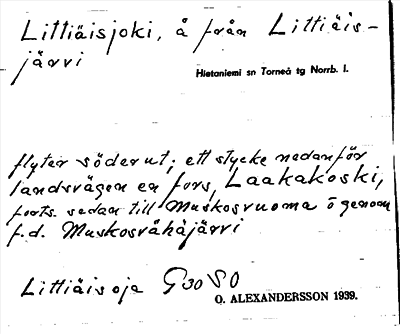 Littiäisjoki, å från Littiäis-
järvi
Hietaniemi sn Torneå tg Norrb. l.
flyter söderut; ett stycke nedanför
landsvägen en fors, Laakakoski,
forts. sedan till Muskosvuoma o genom
f.d. Muskosvåhäjärvi
Littiäisoja G 30 SO
O. ALEXANDERSSON 1939.